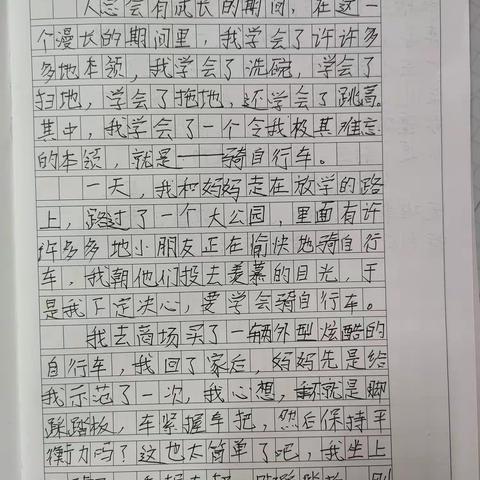 人总会有成长的期间，在这一
个漫长的期间里，我学会了许许多
多地本领，我学会了洗碗，学会了
扫地，学会了拖地，还学会了跳高。
其中，我学会了一个令我极其难忘
的本领，就是——骑自行车。
一天，我和妈妈走在放学的路
上，路过了一个大公园，里面有许
许多多地小朋友正在愉快地骑自行
车，我朝他们投去羡慕的目光，于
是我下定决心，要学会骑自行车。
我去商场买了一辆外型炫酷的
自行车，我回了家后，妈妈先是给
我示范了一次，我心想，就是脚
踩踏板，车紧握车把，然后保持平
衡力吗？这也太简单了吧，我坐上